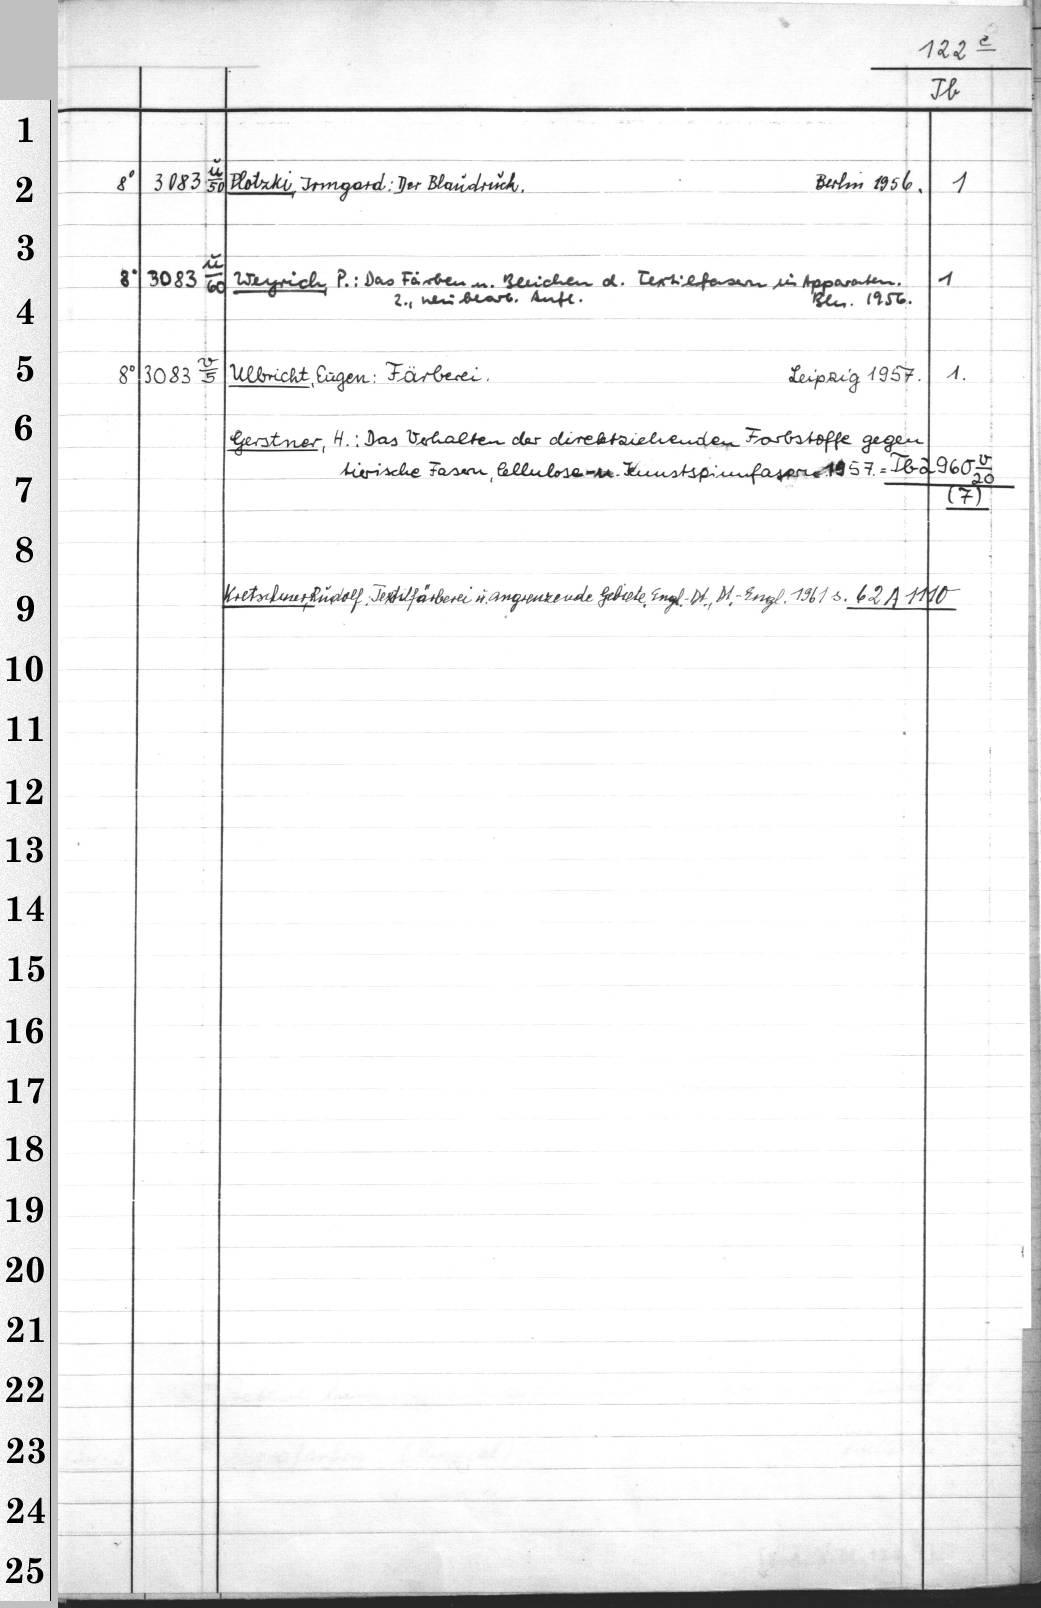 122 e
Tb
1
2
8° 3083 u/50 Plotzki, Irmgard: Der Blaudruck. Berlin 1956. 1
3
8° 3083 u/60 Weyrich, P.: Das Färben u. Bleichen d. Textilfasern in Apparaten. 1
2., neubearb. Aufl. Bln. 1956.
4
5
8° 3083 v/5 Ulbricht, Eugen: Färberei. Leipzig 1957. 1.
6
Gerstner, H.: Das Verhalten der direktziehenden Farbstoffe gegen
tierische Fasern, Cellulose- u. Kunstspinnfasern. 1957. = Tb 2960 v/20
7
(7)
8
9
Kretschmer, Rudolf: Textilfärberei u. angrenzende Gebiete. Engl.-Dt., Dt.-Engl. 1961 s. 62 A 1110
10
11
12
13
14
15
16
17
18
19
20
21
22
23
24
25